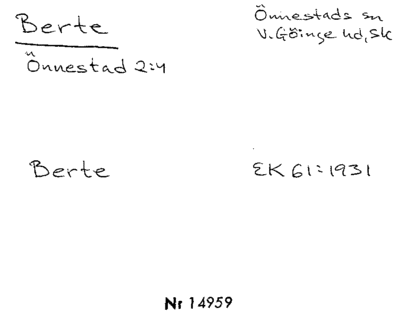 Berte
Önnestads sn
V. Göinge hd, Sk
Önnestad 2:4
Berte
EK 61:1931
Nr 14959